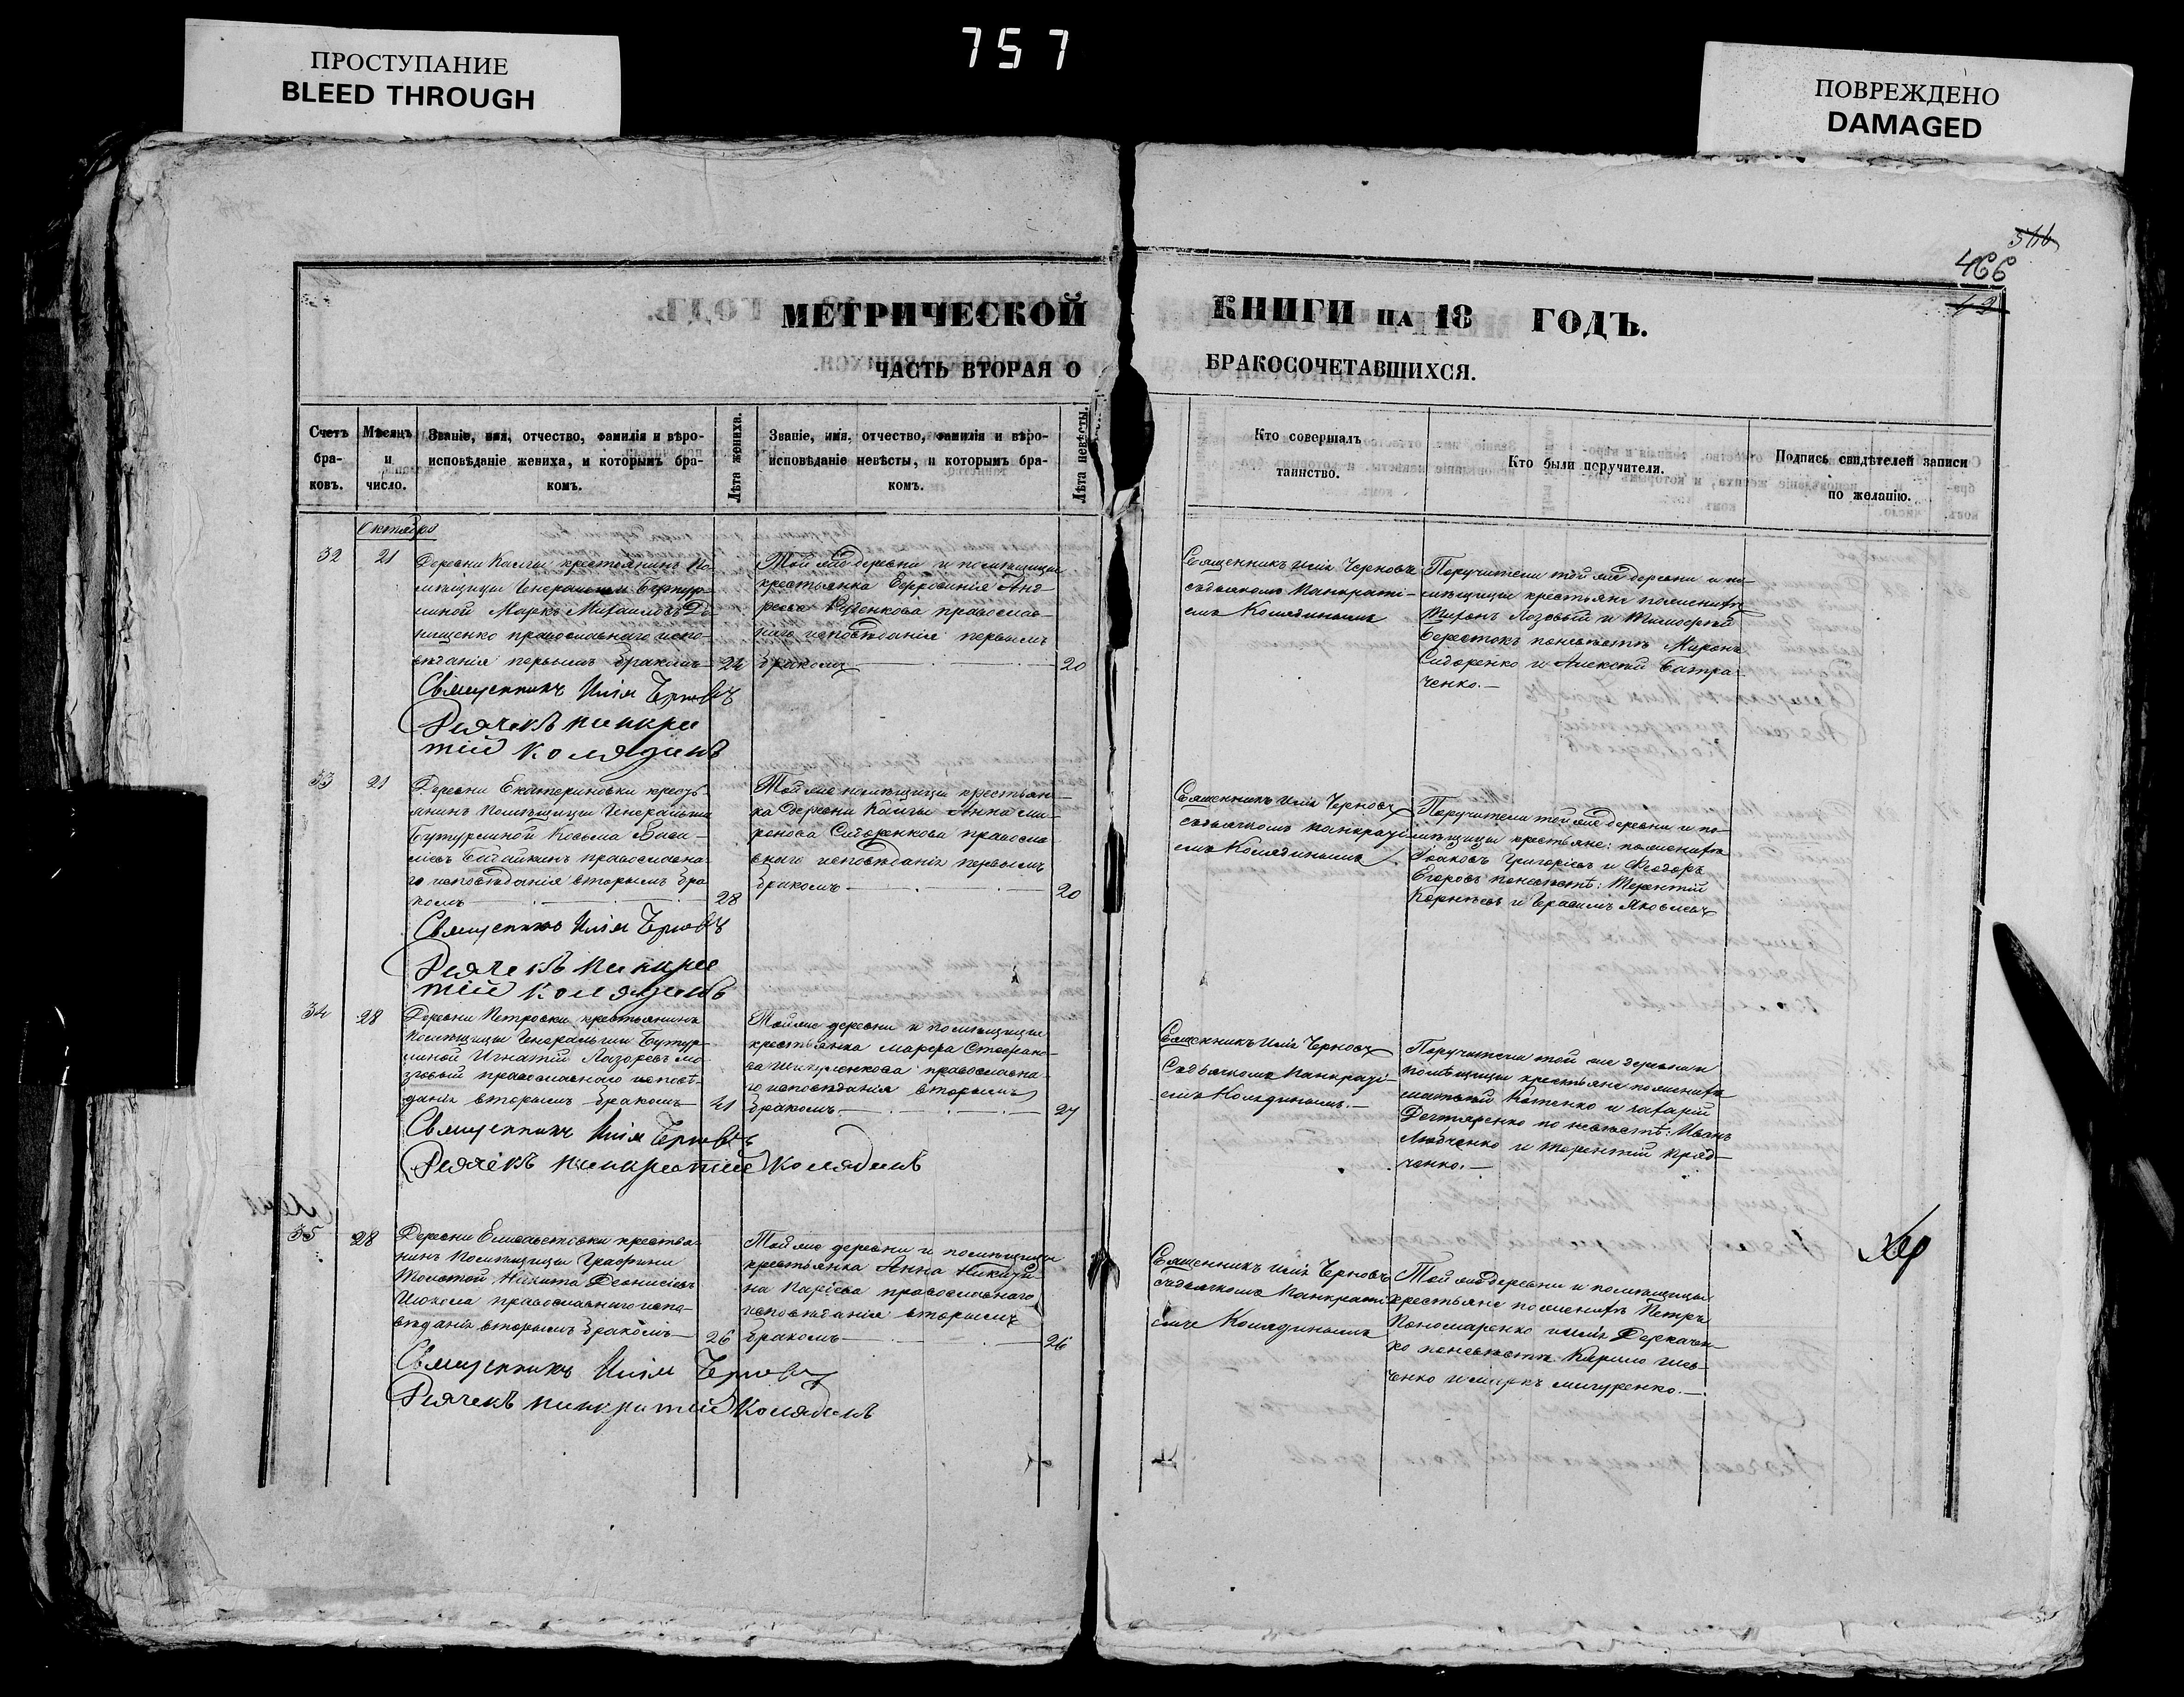 757
ПРОСТУПАНИЕ
BLEED THROUGH
ПОВРЕЖДЕНО
DAMAGED
466
МЕТРИЧЕСКОЙ КНИГИ НА 18 ГОДЪ.
ЧАСТЬ ВТОРАЯ О БРАКОСОЧЕТАВШИХСЯ.
Счетъ браковъ.
Мѣсяцъ и число.
Званіе, имя, отчество, фамилія и вѣроисповѣданіе жениха, и которымъ бракомъ.
Лѣта жениха.
Званіе, имя, отчество, фамилія и вѣроисповѣданіе невѣсты, и которымъ бракомъ.
Лѣта невѣсты.
Кто совершалъ таинство.
Кто были поручители.
Подпись свидѣтелей записи по желанію.
Октября
32
21
Деревни Камчи крестьянинъ По-
мѣщицы Генеральши Бутур-
линой Маркъ Михаиловъ
православнаго испо-
вѣданія первымъ бракомъ
Священникъ Илія Черновъ
Дьячекъ Панкра
тій Колядинъ
Той же деревни и помѣщицы
крестьянка Анд-
реева Руденкова православ-
наго исповѣданія первымъ
бракомъ
20
Священникъ Илія Черновъ
съ дьячкомъ Панкраті-
емъ Колядинымъ
Поручители той же деревни и по-
мѣщицы крестьяне по жениху
Лозовый и Тимофей
по невѣстѣ Миронъ
Сидоренко и Алексѣй Батра-
ченко.
33
21
Деревни Екатериновки кресть-
янинъ Помѣщицы Генеральши
Бутурлиной Косьма Васи-
ліевъ православна-
го исповѣданія вторымъ бра
комъ
28
Священникъ Илія Черновъ
Дьячекъ Панкра
тій Колядинъ
Той же помѣщицы крестьян-
ка деревни Камчи Анна Ми-
ронова Сидоренкова правосла
внаго исповѣданія первымъ
бракомъ
20
Священникъ Илія Черновъ
съ дьячкомъ Панкраті-
емъ Колядинымъ
Поручители той же деревни и по-
мѣщицы крестьяне: по жениху
Іаковъ Григоріевъ и Феодоръ
Егоровъ по невѣстѣ: Терентій
Корнѣевъ и Герасимъ Яковлевъ
34
28
Деревни Петровки крестьянинъ
Помѣщицы Генеральши Бутур-
линой Игнатій Лазоревъ Ло-
зовый православнаго исповѣ-
данія вторымъ бракомъ
Священникъ Илія Черновъ
Дьячекъ Панкратій Колядинъ
Той же деревни и помѣщицы
крестьянка Марфа Стефано-
ва православна-
го исповѣданія вторымъ
бракомъ.
27
Священникъ Илія Черновъ
съ дьячкомъ Панкраті-
емъ Колядинымъ.
Поручители той же деревни и
помѣщицы крестьяне по жениху
Котенко и Захарій
Дегтяренко по невѣстѣ: Иванъ
Любченко и Терентій Пряд-
ченко.
35
28
Деревни Елисаветовки крестья-
нинъ Помѣщицы Графини
Толстой Никита Деонисіевъ
православнаго испо-
вѣданія вторымъ бракомъ
26
Священникъ Илія Черновъ
Дьячекъ Панкратій Колядинъ
Той же деревни и помѣщицы
крестьянка Анна Никити-
на православнаго
исповѣданія вторымъ
бракомъ
26
Священникъ Илія Черновъ
съ дьячкомъ Панкраті
емъ Колядинымъ
Той же деревни и помѣщицы
крестьяне по жениху Петръ
Пономаренко и Илія Деркачен-
ко по невѣстѣ Кирило
ченко и Маркъ Мигуренко.